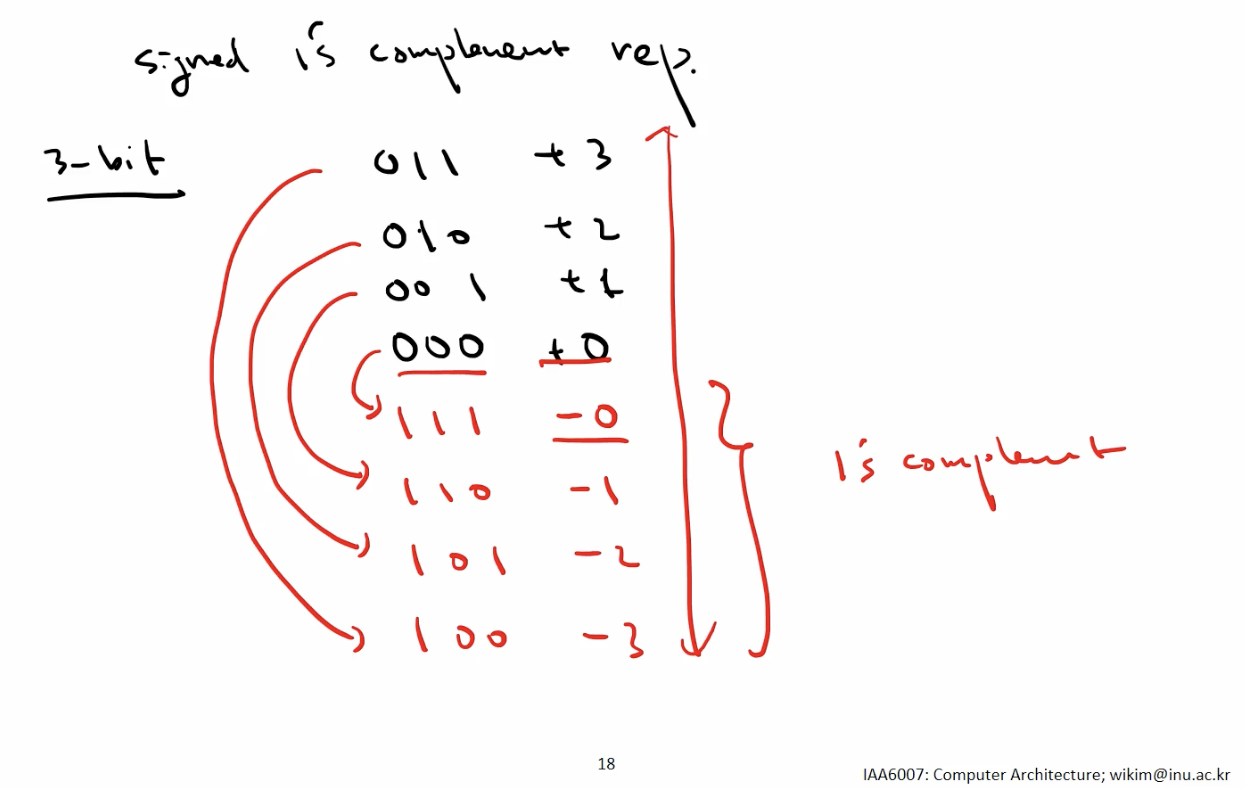 signed 1's complement rep.
3-bit
011 +3
010 +2
001 +1
000 +0
111 -0
110 -1
1's complement
101 -2
100 -3
18
IAA6007: Computer Architecture; wikim@inu.ac.kr